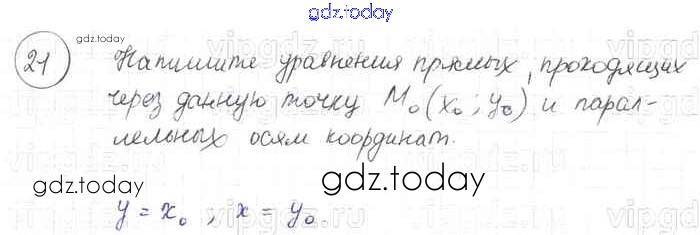 gdz.today
21 Напишите уравнения прямых, проходящих
через данную точку M₀(x₀; y₀) и парал-
лельных осям координат.
gdz.today
gdz.today
y = x₀, x = y₀.